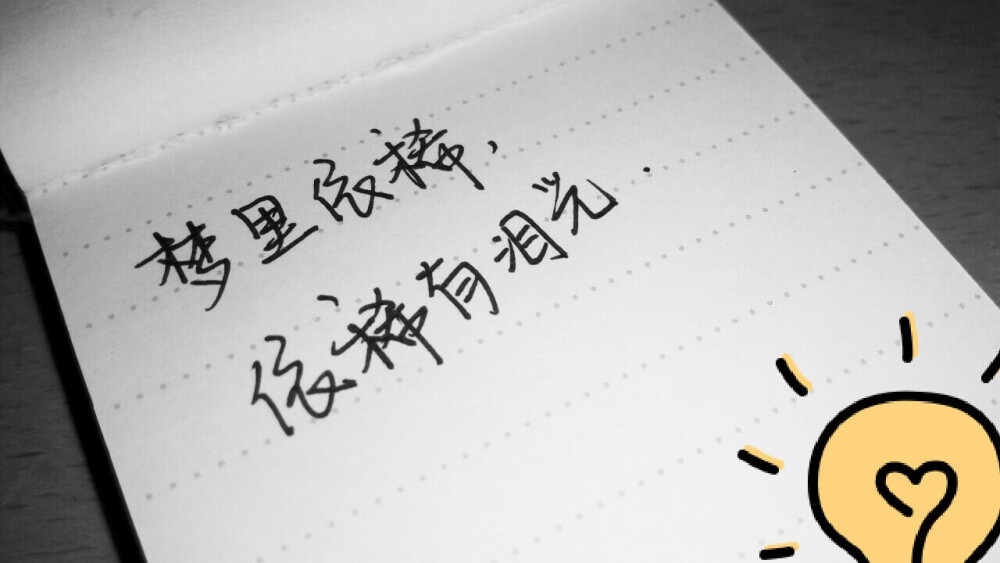 梦里依稀，
依稀有泪光．